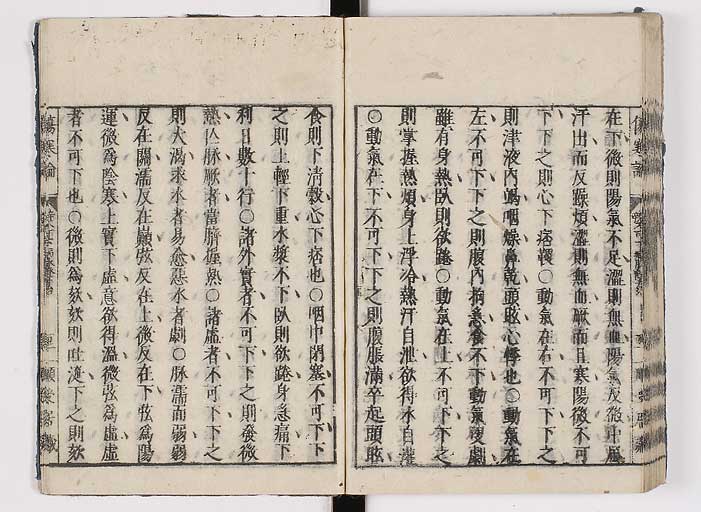 在下微則陽氣不足濇則無血陽氣反微中風
汗出而反躁煩濇則無血厥而且寒陽微不可
下下之則心下痞鞕〇動氣在右不可下下之
則津液內竭咽燥鼻乾頭眩心悸也〇動氣在
左不可下下之則腹內拘急食不下動氣更劇
雖有身熱臥則欲踡〇動氣在上不可下下之
則掌握熱煩身上浮冷熱汗自泄欲得水自灌
〇動氣在下不可下下之則腹脹滿卒起頭眩
食則下清穀心下痞也〇咽中閉塞不可下下
之則上輕下重水漿不下臥則欲踡身急痛下
利日數十行〇諸外實者不可下下之則發微
熱亡脉厥者當臍握熱〇諸虛者不可下下之
則大渴求水者易愈惡水者劇〇脉濡而弱弱
反在關濡反在巔弦反在上微反在下弦爲陽
運微爲陰寒上實下虛意欲得溫微弦爲虛虛
者不可下也〇微則爲欬欬則吐涎下之則欬
傷寒論